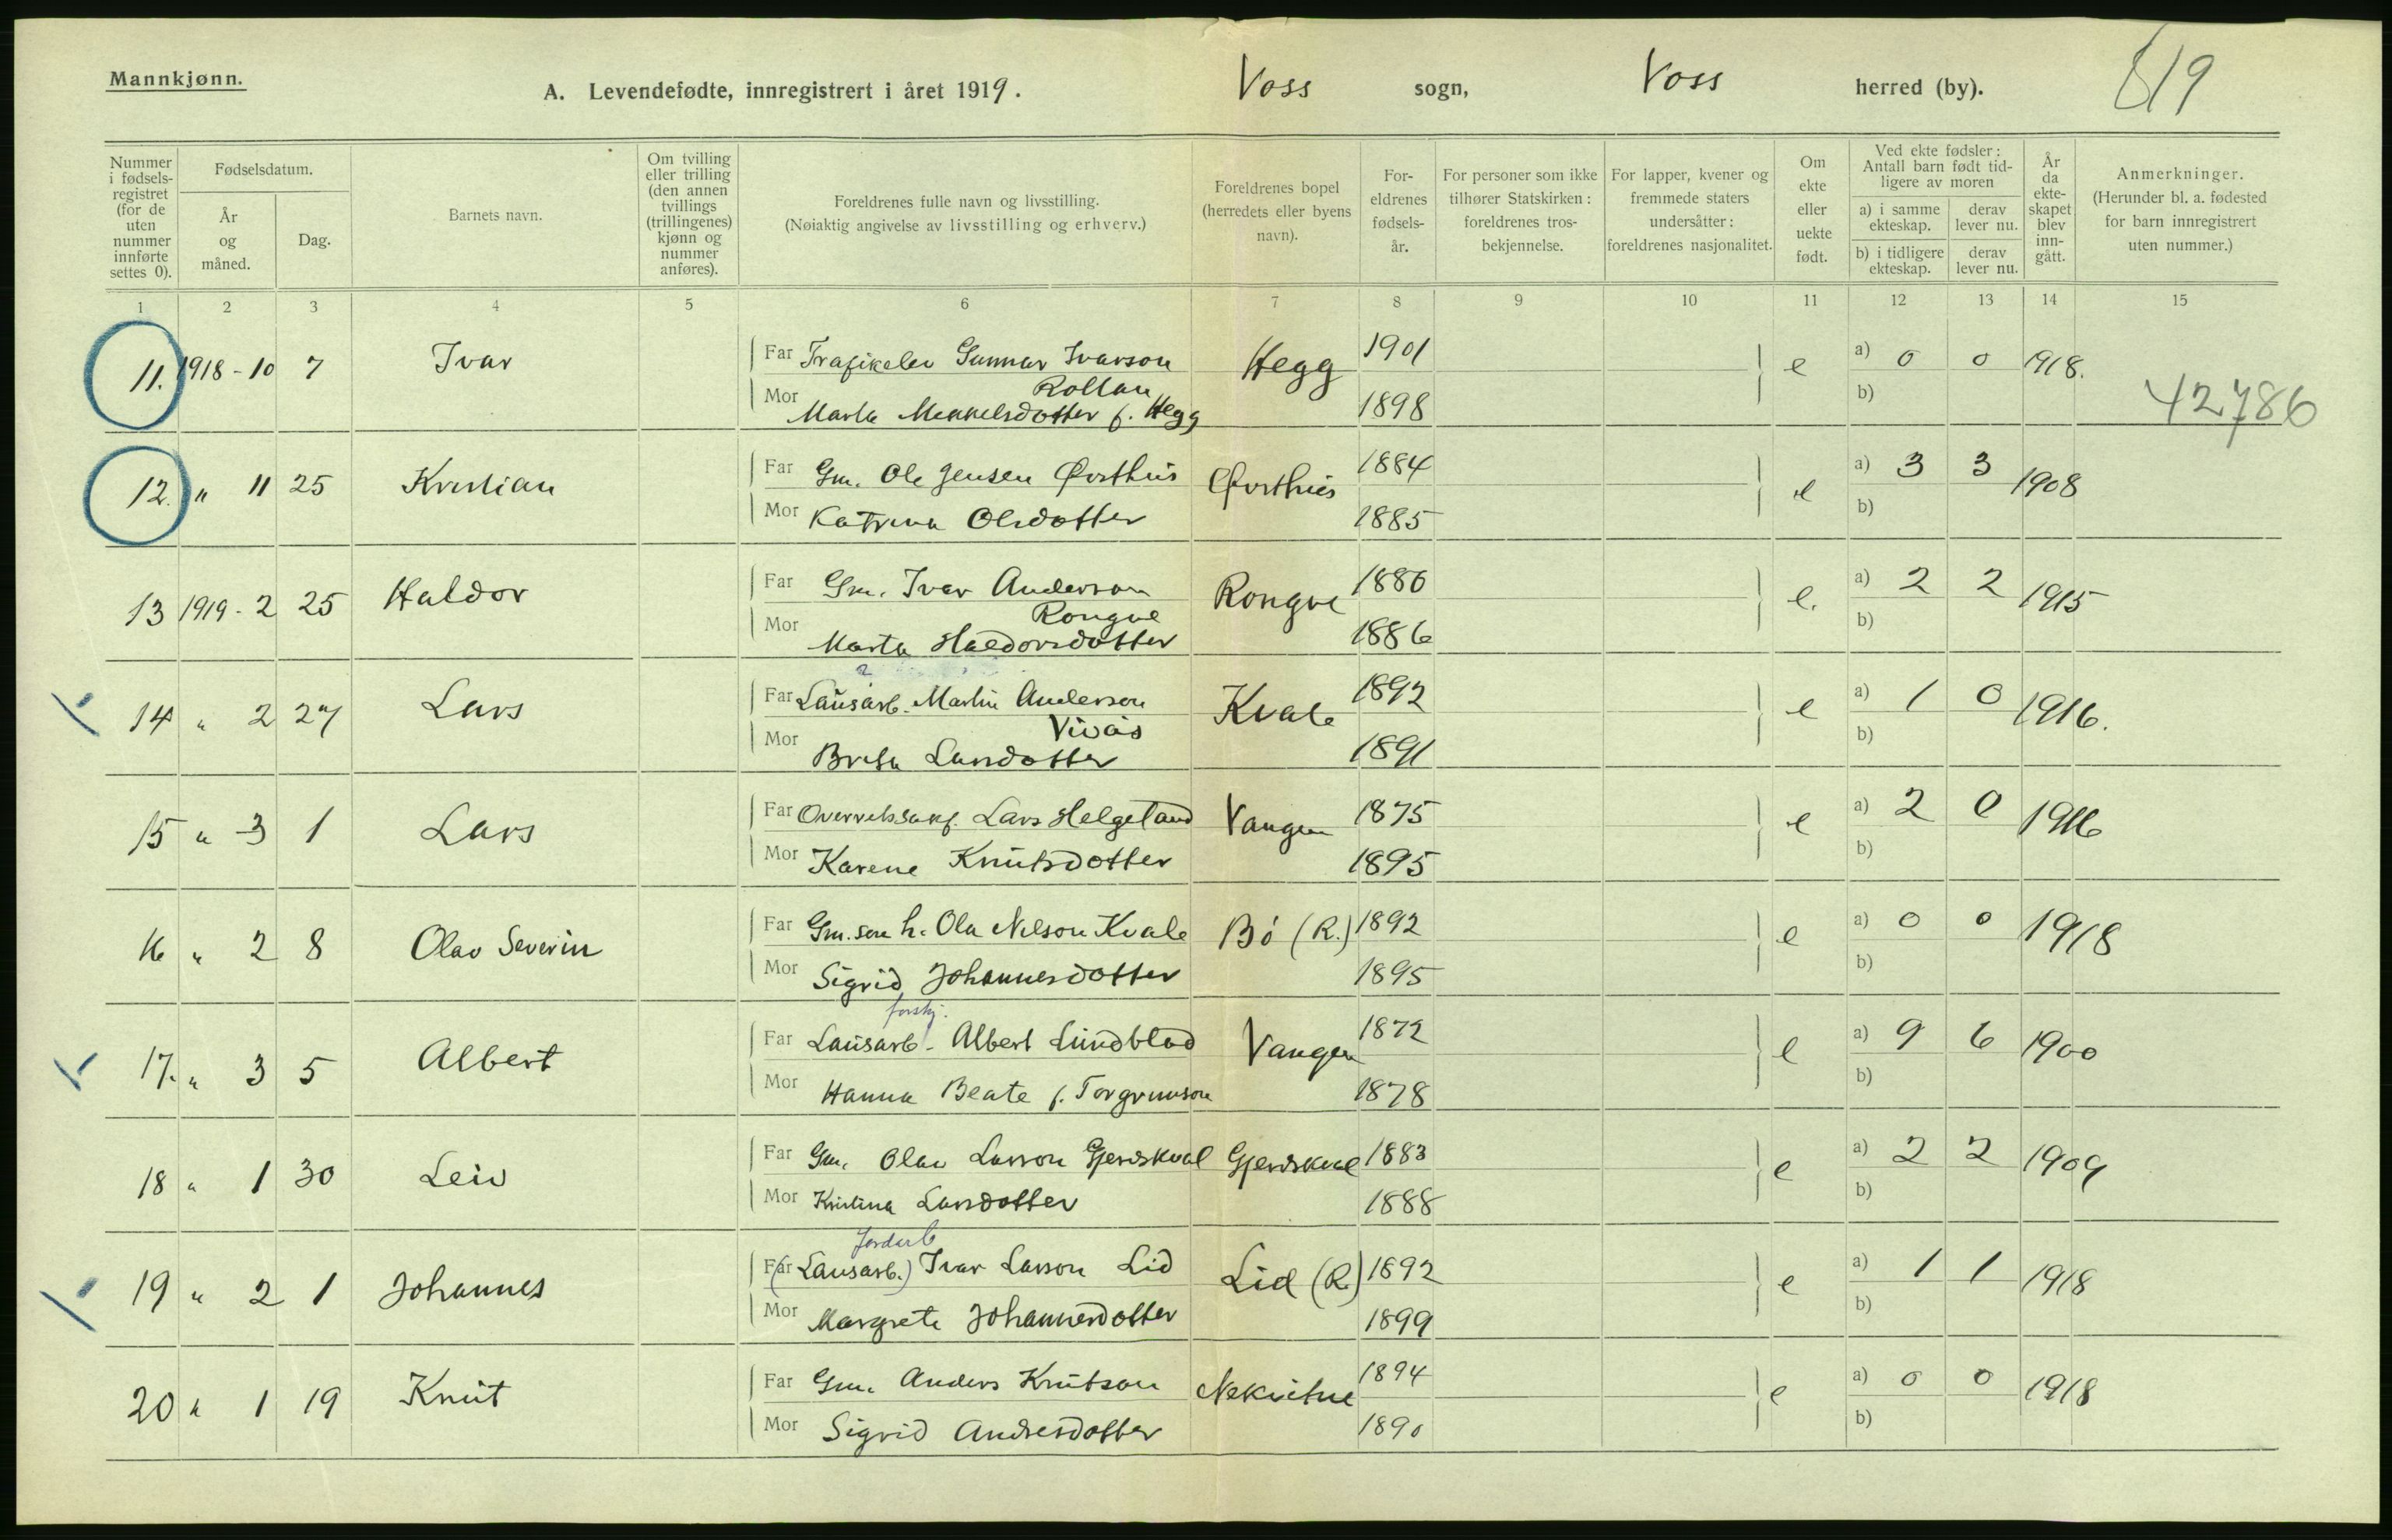 Mannkjønn.
A. Levendefødte, innregistrert i året 1919. Voss sogn, Voss herred (by). 619
Nummer i fødsels-registret (for de uten nummer innførte settes 0).
Fødselsdatum.
År og måned.
Dag.
Barnets navn.
Om tvilling eller trilling (den annen tvillings (trillingenes) kjønn og nummer anføres).
Foreldrenes fulle navn og livsstilling.
(Nøiaktig angivelse av livsstilling og erhverv.)
Foreldrenes bopel (herredets eller byens navn).
For-eldrenes fødsels-år.
For personer som ikke tilhører Statskirken: foreldrenes tros-bekjennelse.
For lapper, kvener og fremmede staters undersåtter: foreldrenes nasjonalitet.
Om ekte eller uekte født.
Ved ekte fødsler: Antall barn født tid-ligere av moren
a) i samme ekteskap. derav lever nu.
b) i tidligere ekteskap. derav lever nu.
År da ekte-skapet blev inn-gått.
Anmerkninger.
(Herunder bl. a. fødested for barn innregistrert uten nummer.)
1 2 3 4 5 6 7 8 9 10 11 12 13 14 15
11. 1918-10 7 Ivar Far Trafikelev Gunnar Ivarson Hegg 1901 e a) 0 0 1918.
Rollan
Mor Marta Mikkelsdotter f. Hegg 1898 b) 42786
12. " 11 25 Kristian Far Gm. Ole Jensen Øvsthus Øvsthus 1884 e a) 3 3 1908
Mor Katrina Olsdotter 1885 b)
13 1919-2 25 Haldor Far Gm. Ivar Anderson Rongve 1880 e. a) 2 2 1915
Rongve
Mor Marta Haldorsdotter 1886 b)
14 " 2 27 Lars Far Lausarb. Martin Anderson Kvale 1892 e a) 1 0 1916.
Vivås
Mor Brita Larsdotter 1891 b)
15 " 3 1 Lars Far Overrettssakf. Lars Helgeland Vangen 1875 e a) 2 0 1916
Mor Karene Knutsdotter 1895 b)
16 " 2 8 Olav Severin Far Gm. son h. Ola Nilson Kvale Bø (R.) 1892 e a) 0 0 1918
Mor Sigrid Johannesdotter 1895 b)
forskj.
17. " 3 5 Albert Far Lausarb. Albert Lundblad Vangen 1872 e a) 9 6 1900
Mor Hanna Beate f. Torgrimson 1878 b)
18 " 1 30 Leiv Far Gm. Olav Larson Gjerdskval Gjerdskval 1883 e a) 2 2 1909
Mor Kristina Larsdotter 1888 b)
Jordarb
19 " 2 1 Johannes Far (Lausarb.) Ivar Larson Lid Lid (R.) 1892 e a) 1 1 1918
Mor Margreta Johannesdotter 1899 b)
20 " 1 19 Knut Far Gm. Anders Knutson Nekvitne 1894 e a) 0 0 1918
Mor Sigrid Andersdotter 1890 b)